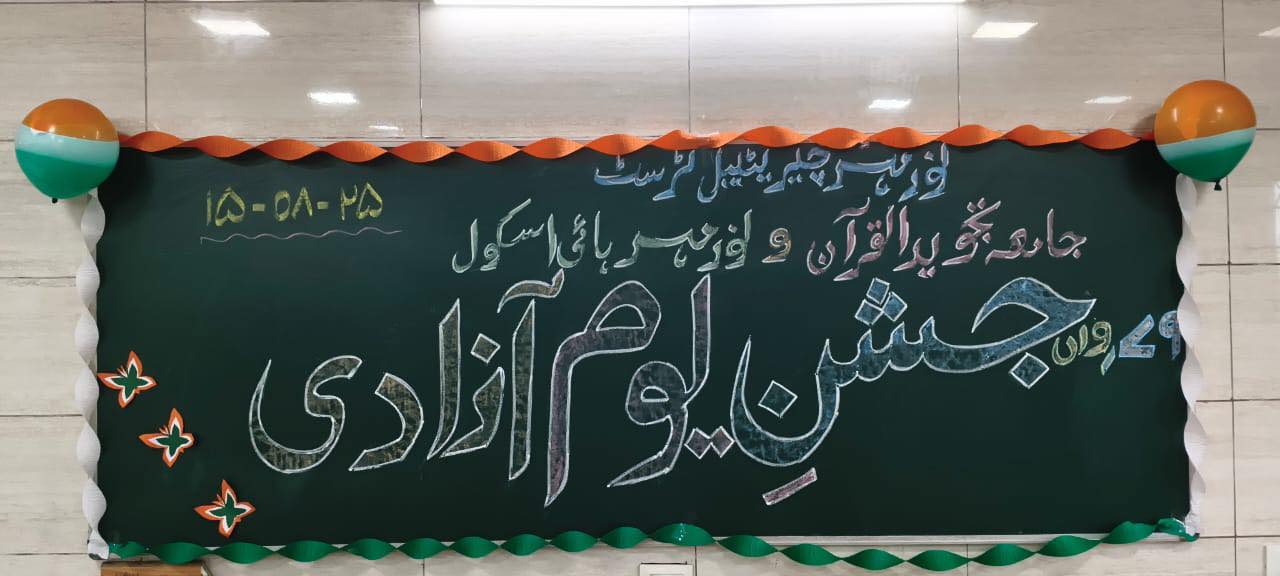 نور مہر چیریٹیبل ٹرسٹ
۱۵-۰۸-۲۵
جامعہ تجوید القرآن و نور مہر ہائی اسکول
۷۹ رواں
جشنِ یوم آزادی